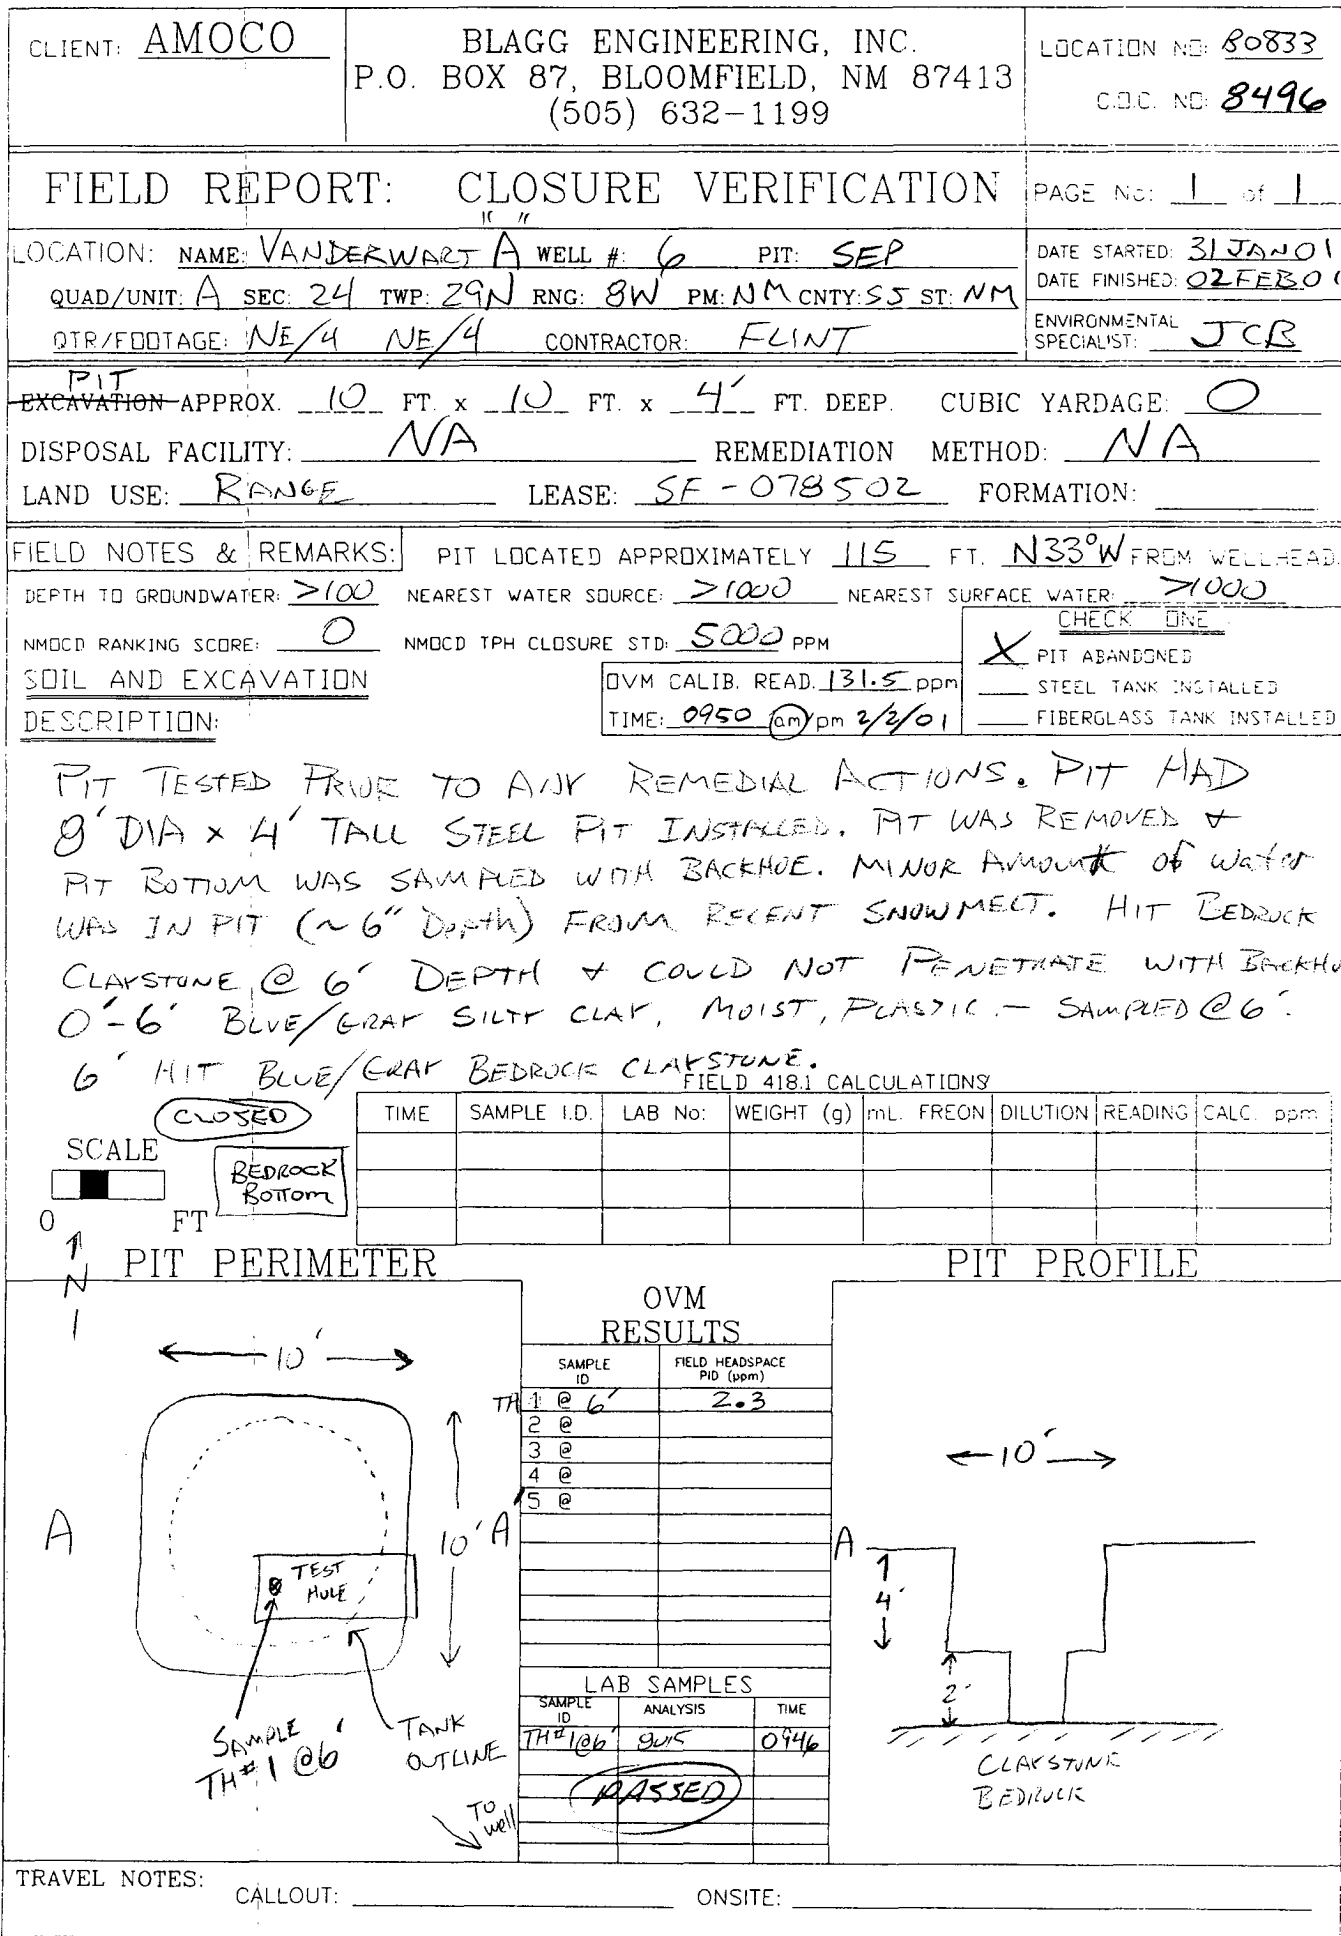 CLIENT: AMOCO
BLAGG ENGINEERING, INC.
P.O. BOX 87, BLOOMFIELD, NM 87413
(505) 632-1199
LOCATION NO: B0833
C.O.C. NO: 8496
FIELD REPORT: CLOSURE VERIFICATION
PAGE No: 1 of 1
LOCATION: NAME: VANDERWART "A" WELL #: 6 PIT: SEP
QUAD/UNIT: A SEC: 24 TWP: 29N RNG: 8W PM: NM CNTY: SJ ST: NM
QTR/FOOTAGE: NE/4 NE/4 CONTRACTOR: FLINT
DATE STARTED: 31 JAN 01
DATE FINISHED: 02 FEB 01
ENVIRONMENTAL
SPECIALIST: JCB
PIT
EXCAVATION APPROX. 10 FT. x 10 FT. x 4' FT. DEEP. CUBIC YARDAGE: 0
DISPOSAL FACILITY: NA REMEDIATION METHOD: NA
LAND USE: RANGE LEASE: SF-078502 FORMATION:
FIELD NOTES & REMARKS: PIT LOCATED APPROXIMATELY 115 FT. N33°W FROM WELLHEAD.
DEPTH TO GROUNDWATER: >100 NEAREST WATER SOURCE: >1000 NEAREST SURFACE WATER: >1000
NMOCD RANKING SCORE: 0 NMOCD TPH CLOSURE STD: 5000 PPM
CHECK ONE
X PIT ABANDONED
STEEL TANK INSTALLED
FIBERGLASS TANK INSTALLED
SOIL AND EXCAVATION
DESCRIPTION:
OVM CALIB. READ. 131.5 ppm
TIME: 0950 am/pm 2/2/01
PIT TESTED PRIOR TO ANY REMEDIAL ACTIONS. PIT HAD
8' DIA x 4' TALL STEEL PIT INSTALLED. PIT WAS REMOVED &
PIT BOTTOM WAS SAMPLED WITH BACKHOE. MINOR AMOUNT of water
WAS IN PIT (~6" Depth) FROM RECENT SNOWMELT. HIT BEDROCK
CLAYSTONE @ 6' DEPTH & COULD NOT PENETRATE WITH BACKHO
0'-6' BLUE/GRAY SILTY CLAY, MOIST, PLASTIC. - SAMPLED @ 6'.
6' HIT BLUE/GRAY BEDROCK CLAYSTONE.
FIELD 418.1 CALCULATIONS
CLOSED
TIME SAMPLE I.D. LAB No: WEIGHT (g) mL. FREON DILUTION READING CALC. ppm
SCALE
0 FT
BEDROCK
BOTTOM
N
PIT PERIMETER
PIT PROFILE
OVM
RESULTS
SAMPLE ID FIELD HEADSPACE PID (ppm)
TH 1 @ 6' 2.3
2 @
3 @
4 @
5 @
10'
10'
A
A'
TEST
HOLE
SAMPLE
TH#1 @6'
TANK
OUTLINE
TO
well
LAB SAMPLES
SAMPLE ID ANALYSIS TIME
TH#1@6' 8015 0946
PASSED
10'
A
4'
2'
CLAYSTONE
BEDROCK
TRAVEL NOTES:
CALLOUT: ONSITE: